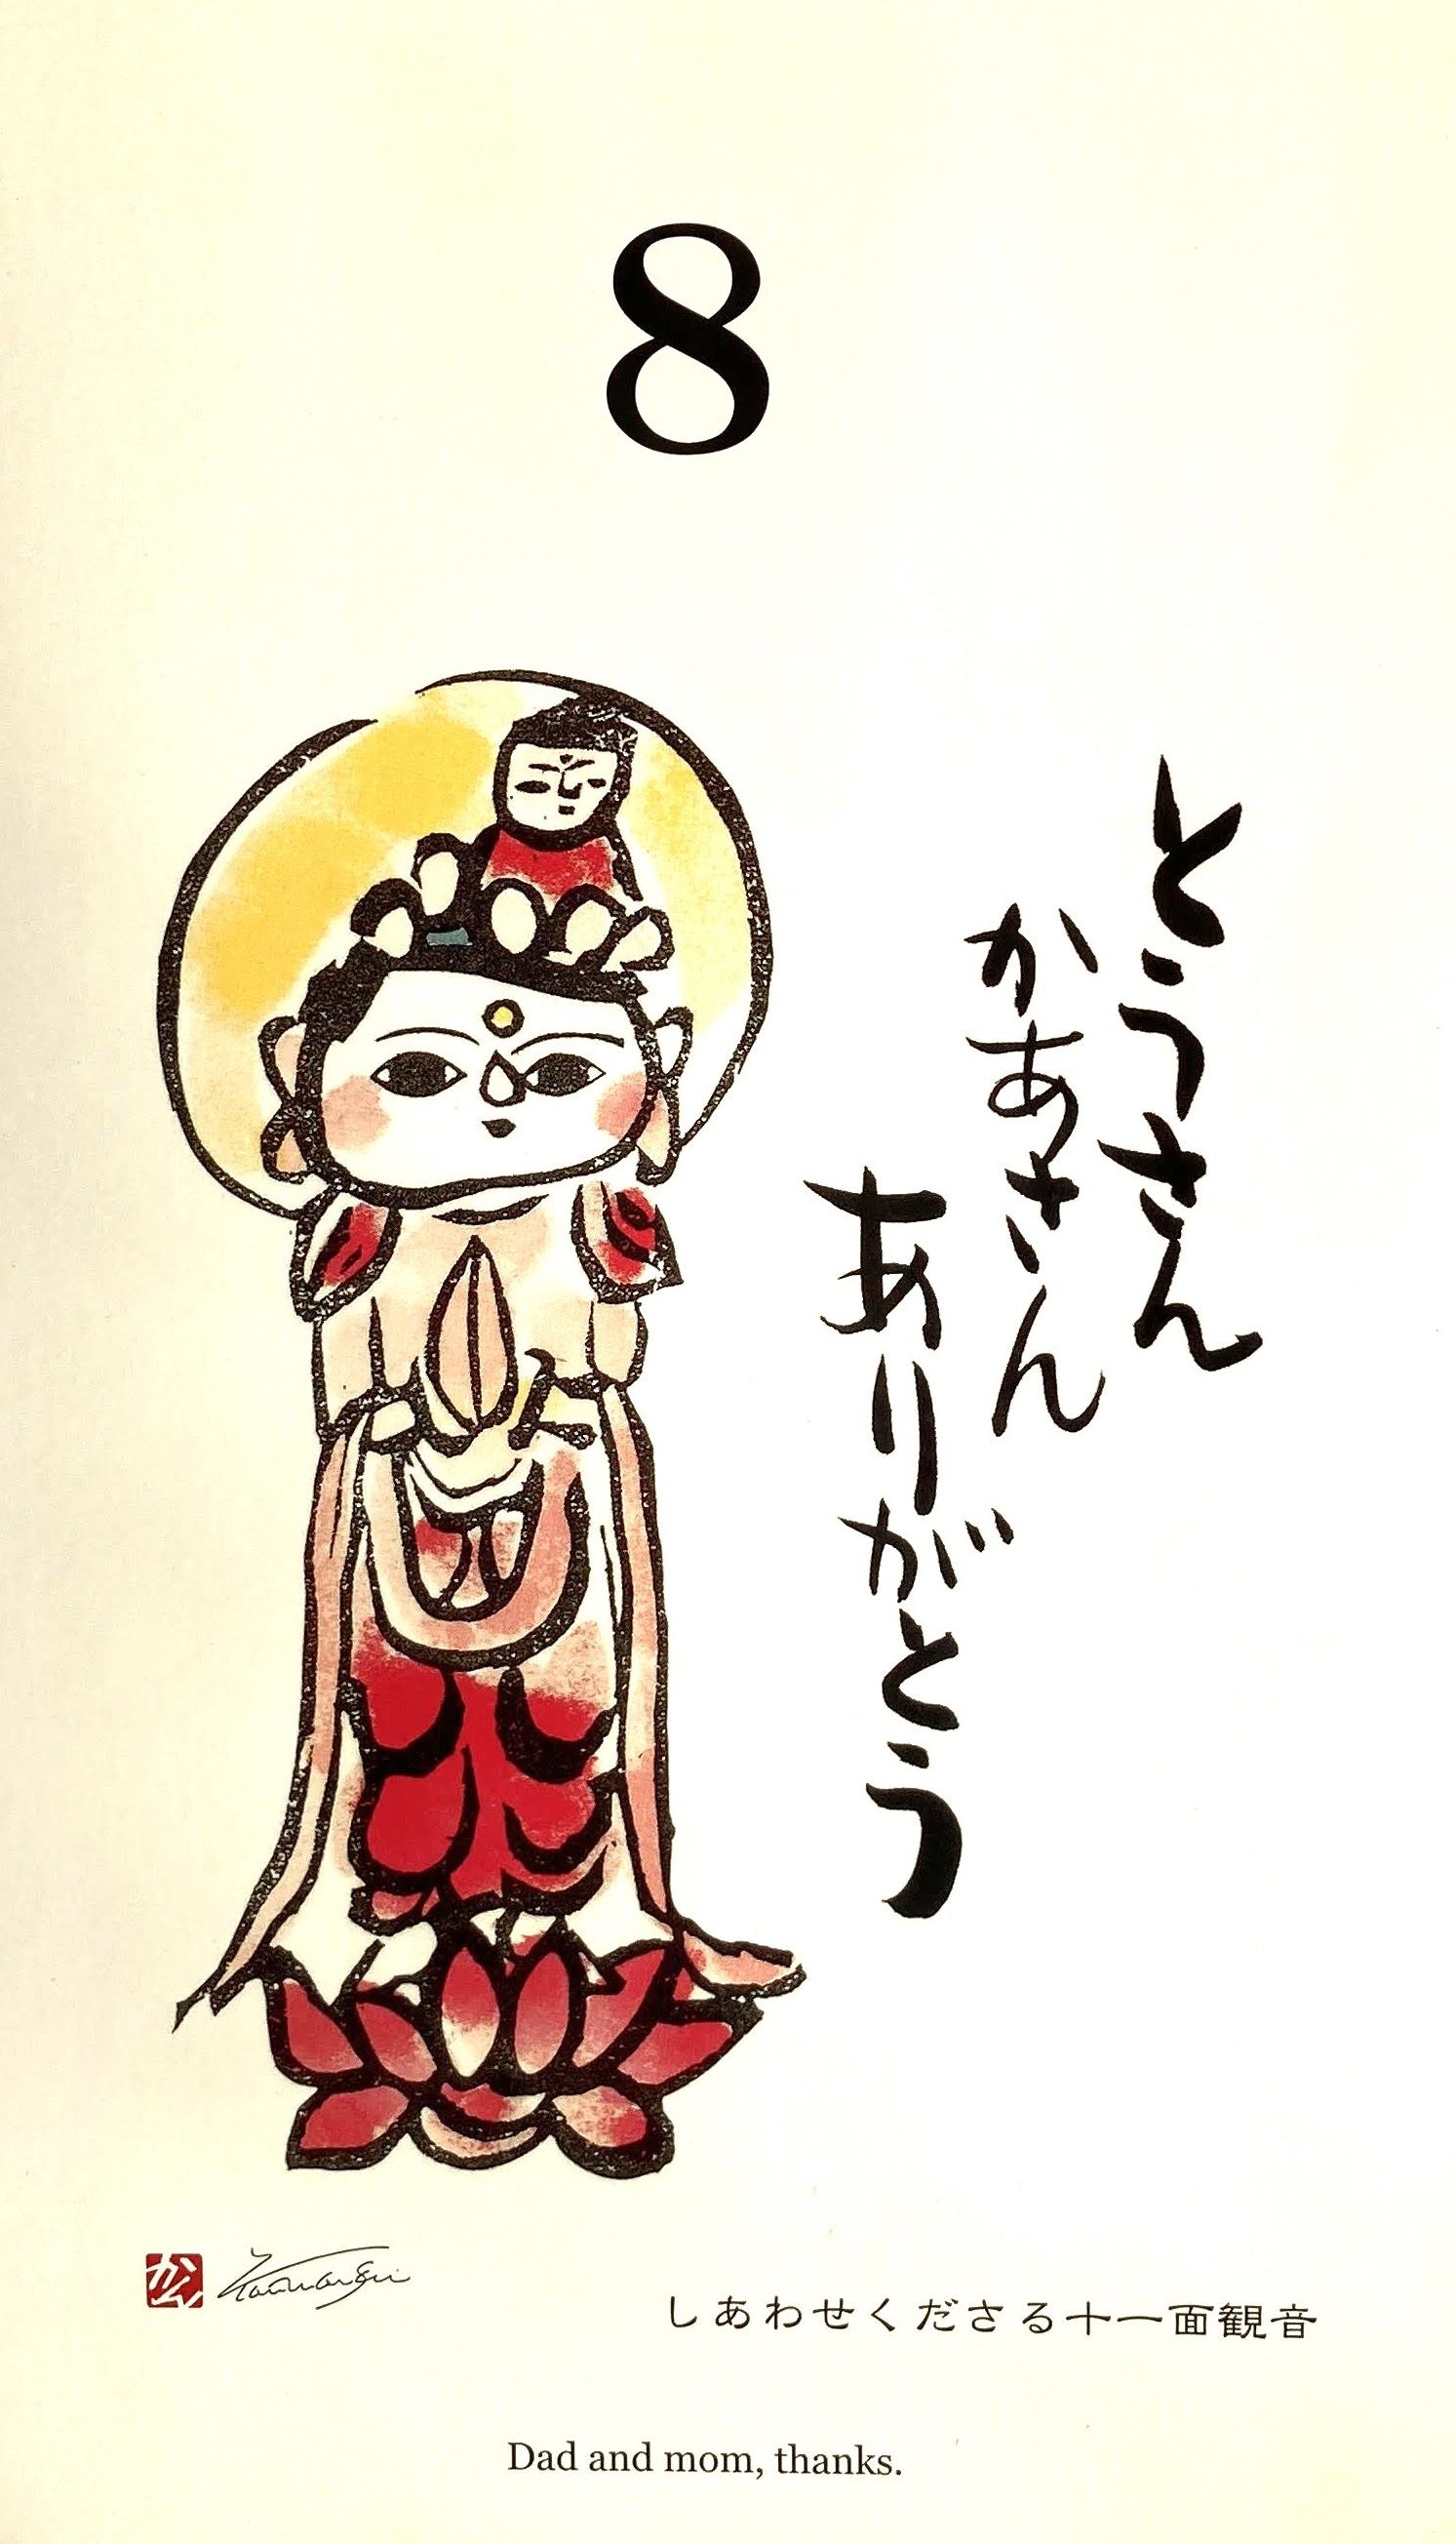 8
とうさん
かあさん
ありがとう
かん
しあわせくださる十一面観音
Dad and mom, thanks.